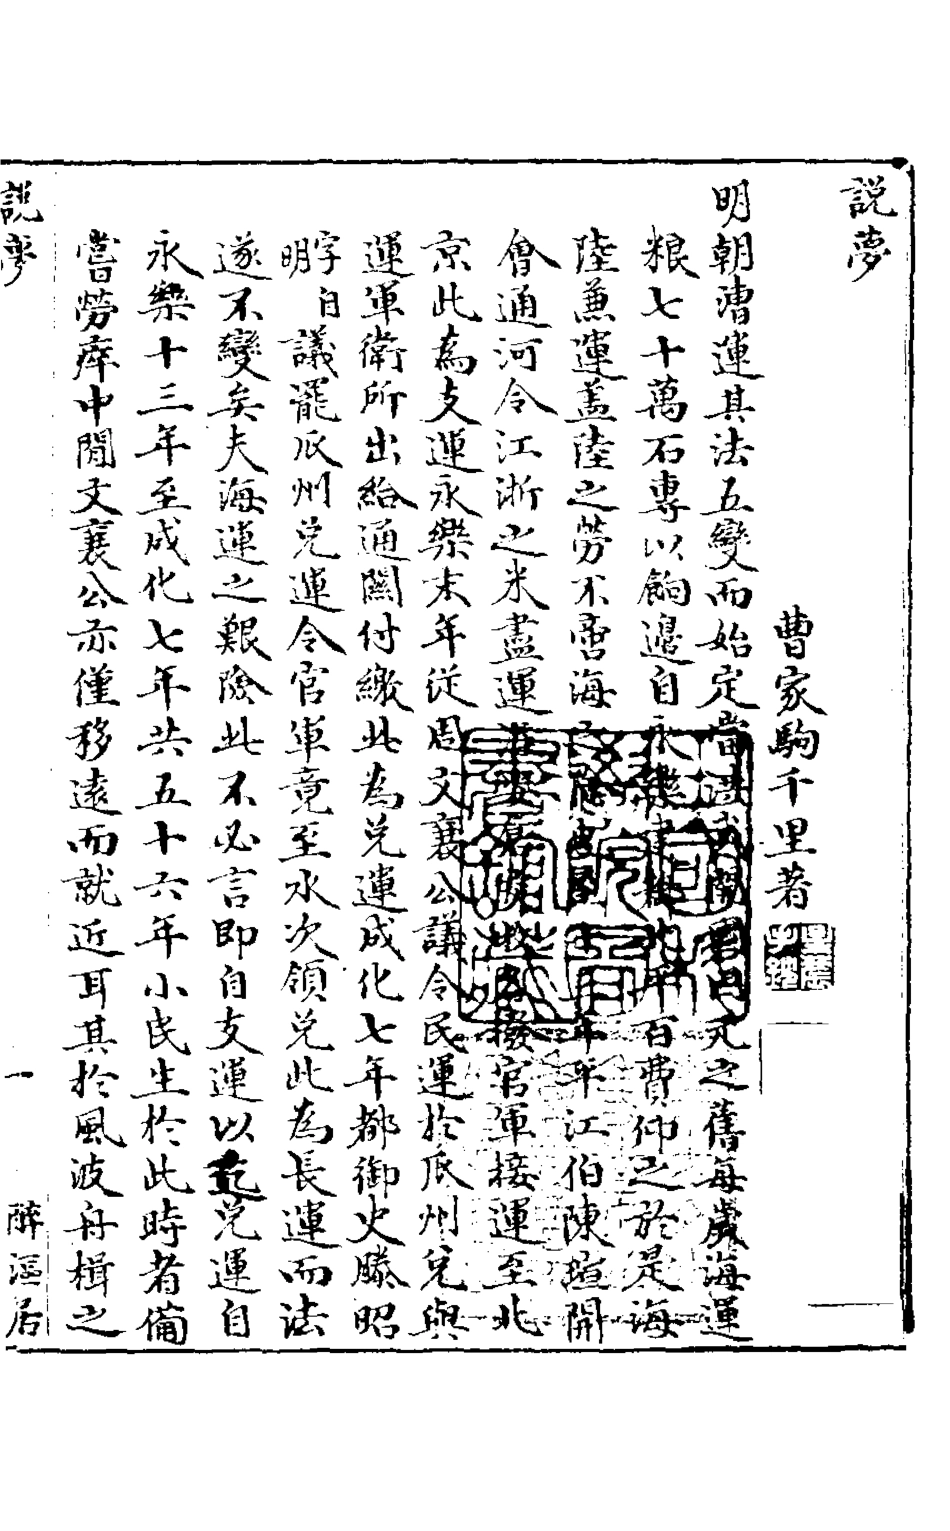 說夢
曹家駒千里著
明朝漕運其法五變而始定當洪武開國因元之舊每歲海運
粮七十萬石專以餉邊自永樂建都北平百費仰之於是海
陸兼運盖陸之勞不啻海之險也 年平江伯陳瑄開
會通河令江浙之米盡運淮安倉 撥官軍接運至北
京此為支運永樂末年從周文襄公議令民運於瓜州兌與
運軍衛所出給通關付繳此為兌運成化七年都御史滕昭
字自明議罷瓜州兌運令官軍竟至水次領兌此為長運而法
遂不變矣夫海運之艱險此不必言即自支運以訖兌運自
永樂十三年至成化七年共五十六年小民生於此時者備
嘗勞瘁中閒文襄公亦僅移遠而就近耳其於風波舟楫之
說夢
一
醉漚居